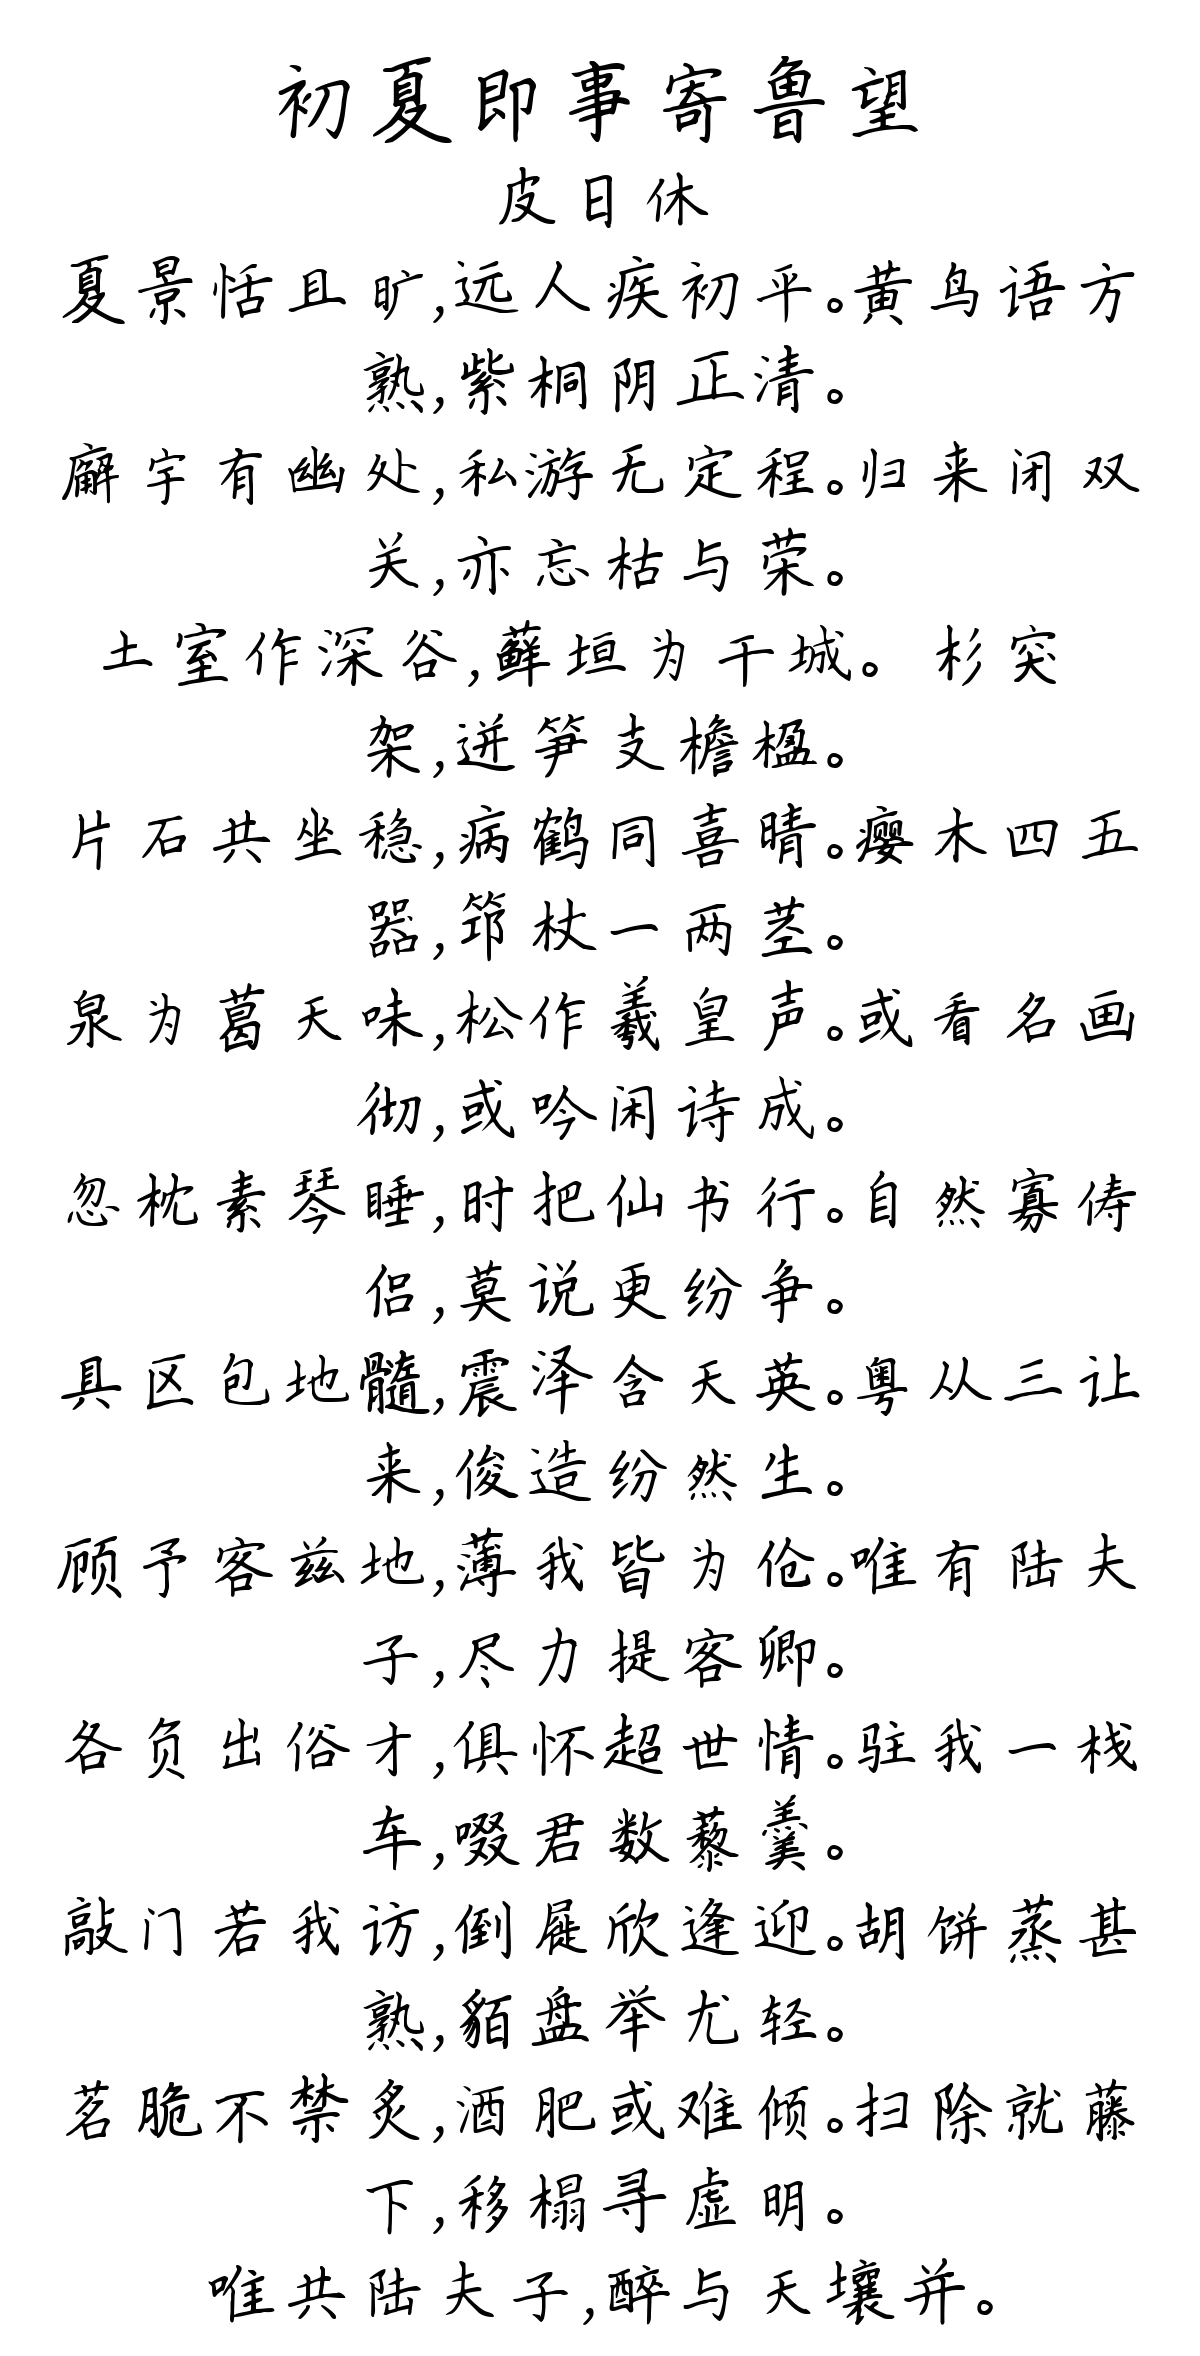 初夏即事寄鲁望
皮日休
夏景恬且旷,远人疾初平。黄鸟语方
熟,紫桐阴正清。
廨宇有幽处,私游无定程。归来闭双
关,亦忘枯与荣。
土室作深谷,藓垣为干城。 杉突
架,迸笋支檐楹。
片石共坐稳,病鹤同喜晴。瘿木四五
器,筇杖一两茎。
泉为葛天味,松作羲皇声。或看名画
彻,或吟闲诗成。
忽枕素琴睡,时把仙书行。自然寡俦
侣,莫说更纷争。
具区包地髓,震泽含天英。粤从三让
来,俊造纷然生。
顾予客兹地,薄我皆为伧。唯有陆夫
子,尽力提客卿。
各负出俗才,俱怀超世情。驻我一栈
车,啜君数藜羹。
敲门若我访,倒屣欣逢迎。胡饼蒸甚
熟,貊盘举尤轻。
茗脆不禁炙,酒肥或难倾。扫除就藤
下,移榻寻虚明。
唯共陆夫子,醉与天壤并。